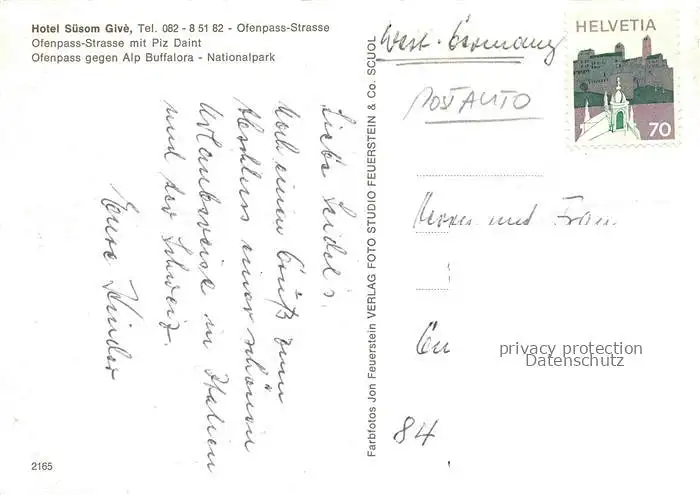 Hotel Süsom Givè, Tel. 082 - 8 51 82 - Ofenpass-Strasse
Ofenpass-Strasse mit Piz Daint
Ofenpass gegen Alp Buffalora - Nationalpark
Liebe Seidel's,
Noch einen Gruß zum
Abschluss einer schönen
Urlaubsreise in Italien
und der Schweiz.
Eure Kinder
2165
Farbfotos Jon Feuerstein VERLAG FOTO STUDIO FEUERSTEIN & Co. SCUOL
West-Germany
POSTAUTO
HELVETIA
70
Herrn und Frau
privacy protection
Datenschutz
84